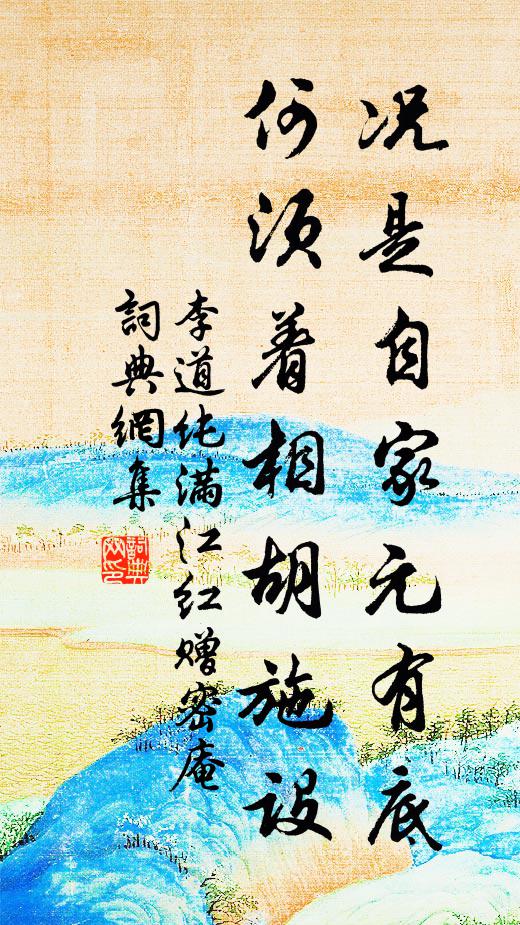 况是自家元有底
何须着相胡施设
李道纯满江红赠密庵
詞典網集